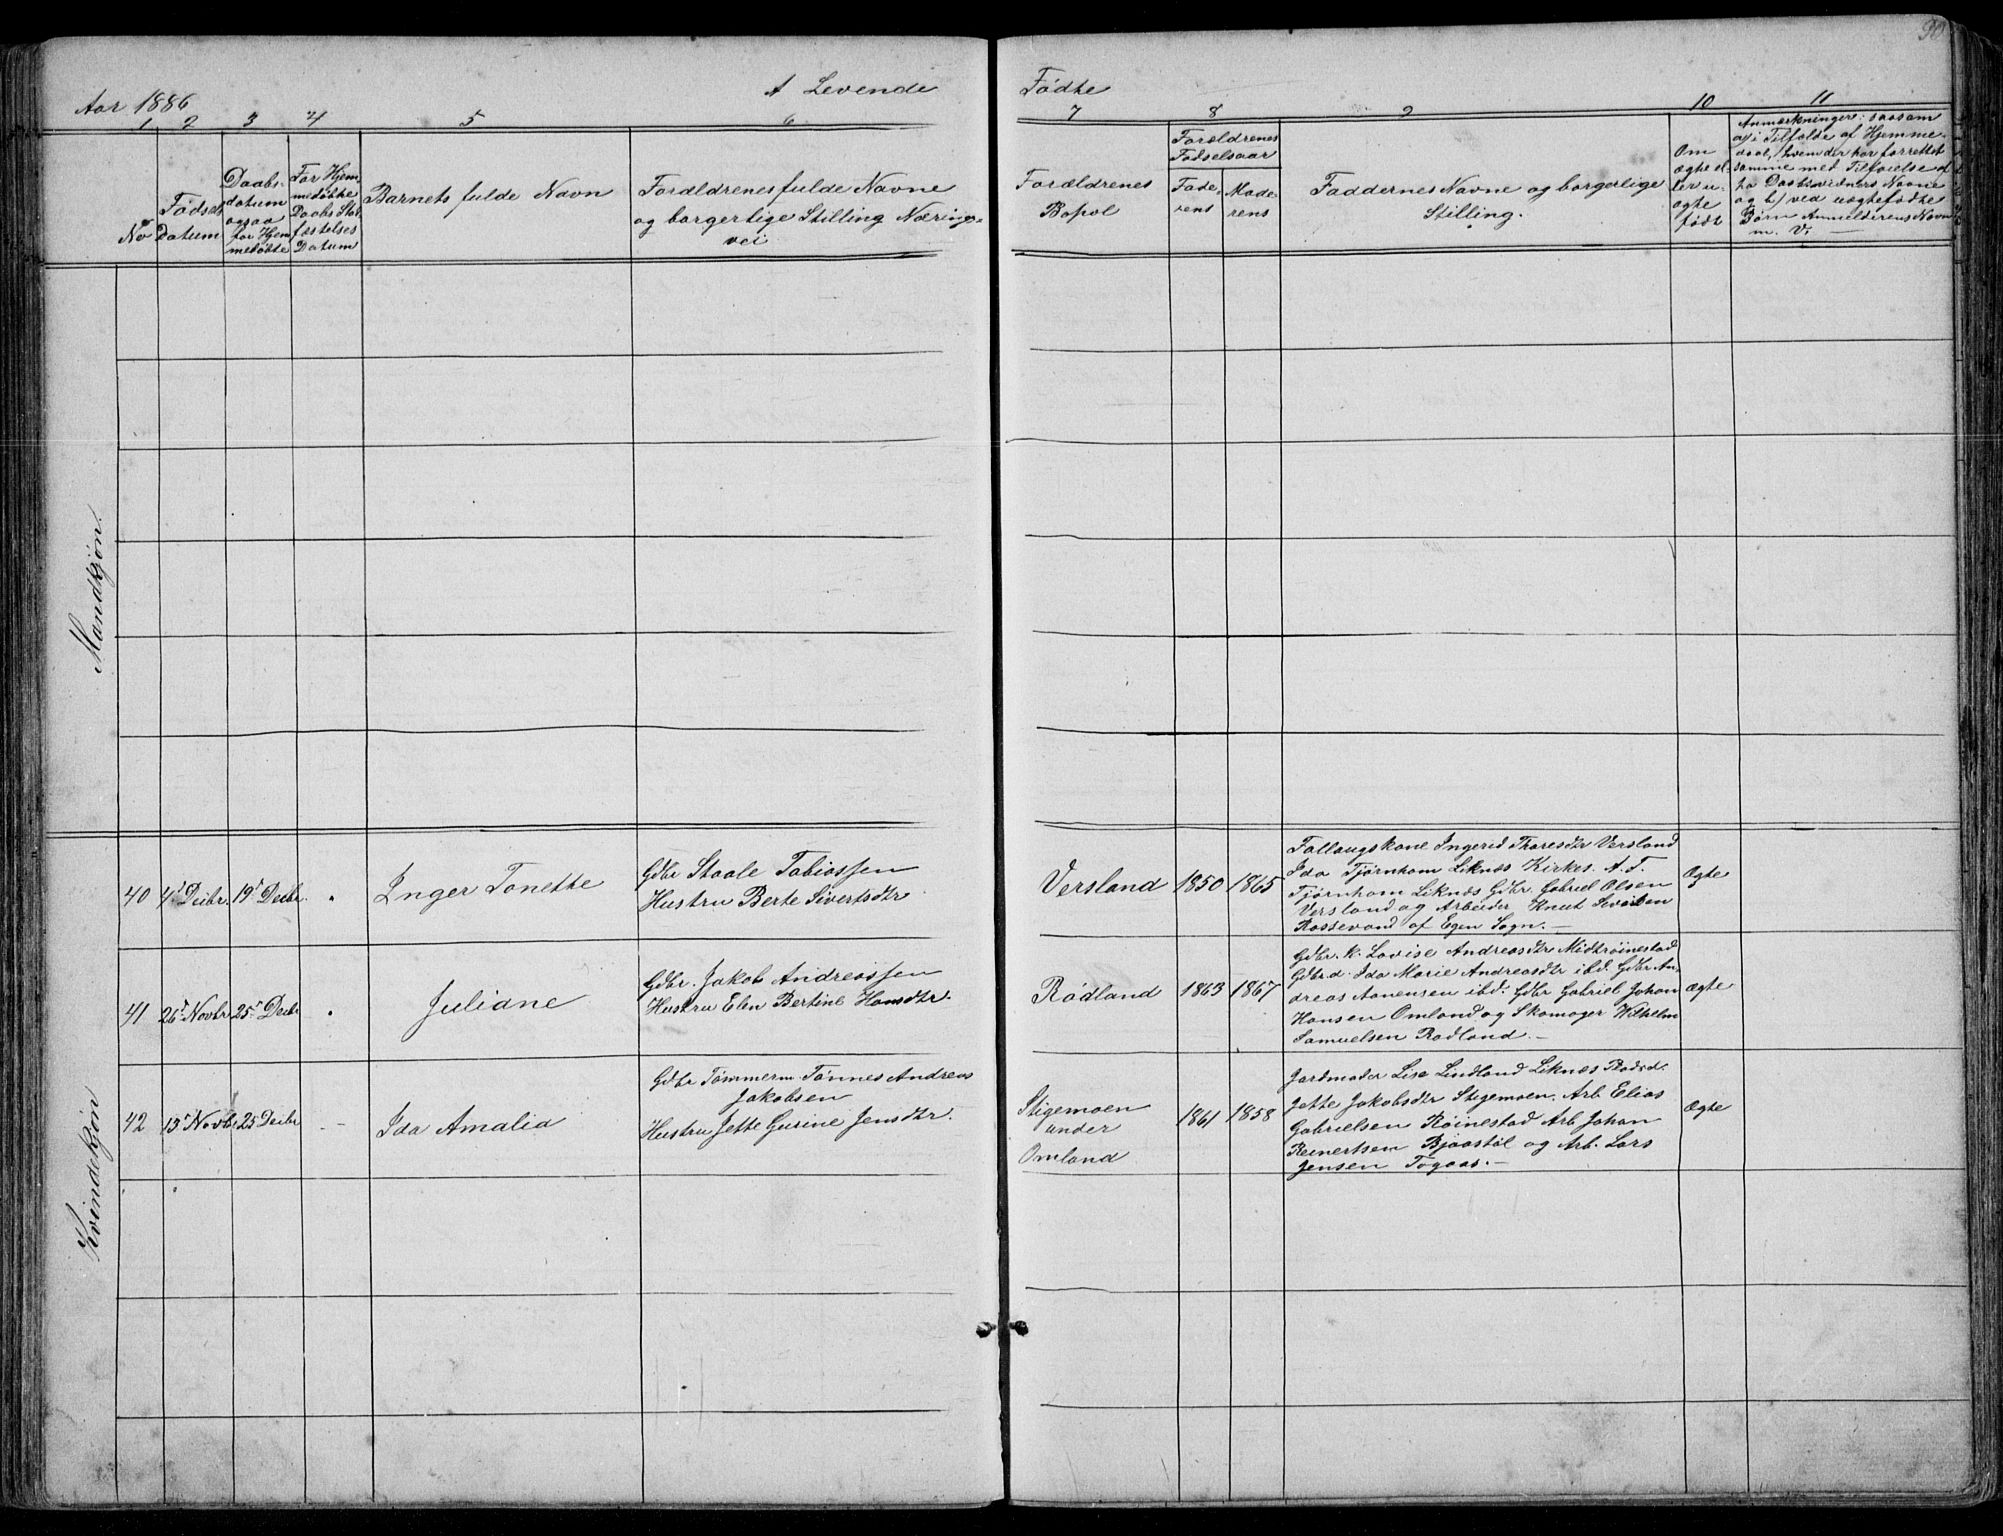 30
Aar 1886
A Levende
Fødte
1 2 3 4 5 6
7 8 9 10 11
No
Fødsels
Datum
Daabs-
datum
ogsaa
for Hjem
medøbte
For Hjem
medøbte
Daabs Stad
fæstelses
Datum
Barnets fulde Navn
Forældrenes fulde Navne
og borgerlige Stilling Nærings-
vei
Forældrenes
Bopæl
Forældrenes
Fødselsaar
Fade-
rens
Mode-
rens
Faddernes Navne og borgerlige
Stilling.
Om
ægte el-
ler u-
ægte
født
Anmærkninger; saasom
a) i Tilfælde af Hjemme-
daab, hvem der har forrettet
samme med Tilføielse af
to Daabsvidners Navne
og b) ved uægtefødte
Børn Anmelderens Navn
m. V. —
Mandkjøn.
Kvindekjøn
40 4d Decbr. 19d Decbr. "
Inger Tonette
Gdbr Staale Tobiassen
Hustru Berte Sivertsdtr
Versland 1850 1865
Fallaugskone Ingerid Tharesdtr Versland
Ida Tjørnhom Liknæs Kirkes. A. T.
Tjørnhom Liknæs Gdbr. Gabriel Olsen
Versland og Arbeider Knut Sivertsen
Rossevand af Egen Sogn. —
Ægte
41 26d Novbr 25d Decbr "
Juliane
Gdbr. Jakob Andreassen
Hustru Elen Bertine Hansdtr.
Rødland 1863 1867
Gdbr. K. Lovise Andreasdtr Midtrøinestad
Gdbr.d. Ida Marie Andreasdtr ibd. Gdbr An-
dreas Aanensen ibd. Gdbr Gabriel Johan
Hansen Omland og Skomager Wilhelm
Samuelsen Rødland. —
ægte
42 13d Novbr 25 Decbr —
Ida Amalia
Gdbr Tømmerm. Tønnes Andreas
Jakobsen
Hustru Jette Gusine Jensdtr.
Stigemoen
under
Omland
1861 1858
Jordmoder Lise Lindland Liknæs
Jette Jakobsdtr Stigemoen. Arb Elias
Gabrielsen Røinestad Arb Johan
Reinertsen Bjaastøl og Arb. Lars
Jensen Togaas. —
Ægte